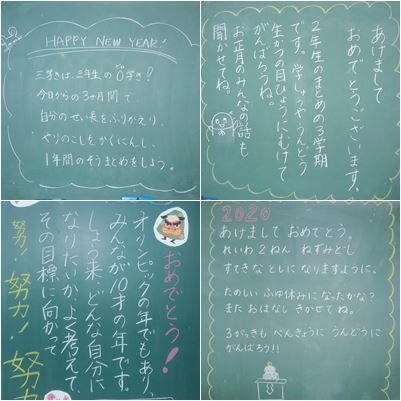 HAPPY NEW YEAR!
三学きは、三年生の0学き?
今日からの3ヶ月間で
自分のせい長をふりかえり、
やりのこしをかくにんし、
1年間のそうまとめをしよう。
あけまして
おめでとうございます。
2年生のまとめの3学期
です。学しゅうやうんどう
生かつの目ひょうにむけて
がんばろうね。
お正月のみんなの話も
聞かせてね。
おめでとう!
オリンピックの年でもあり、
みんなが10才の年です。
しょう来、どんな自分に
なりたいか、よく考えて、
その目標に向かって
努力!努力!努力
2020
あけまして おめでとう。
れいわ2ねん ねずみどし
すてきな としに なりますように。
たのしい ふゆ休みに なったかな?
また おはなし きかせて ね。
3がっきも べんきょうに うんどうに
がんばろう!!